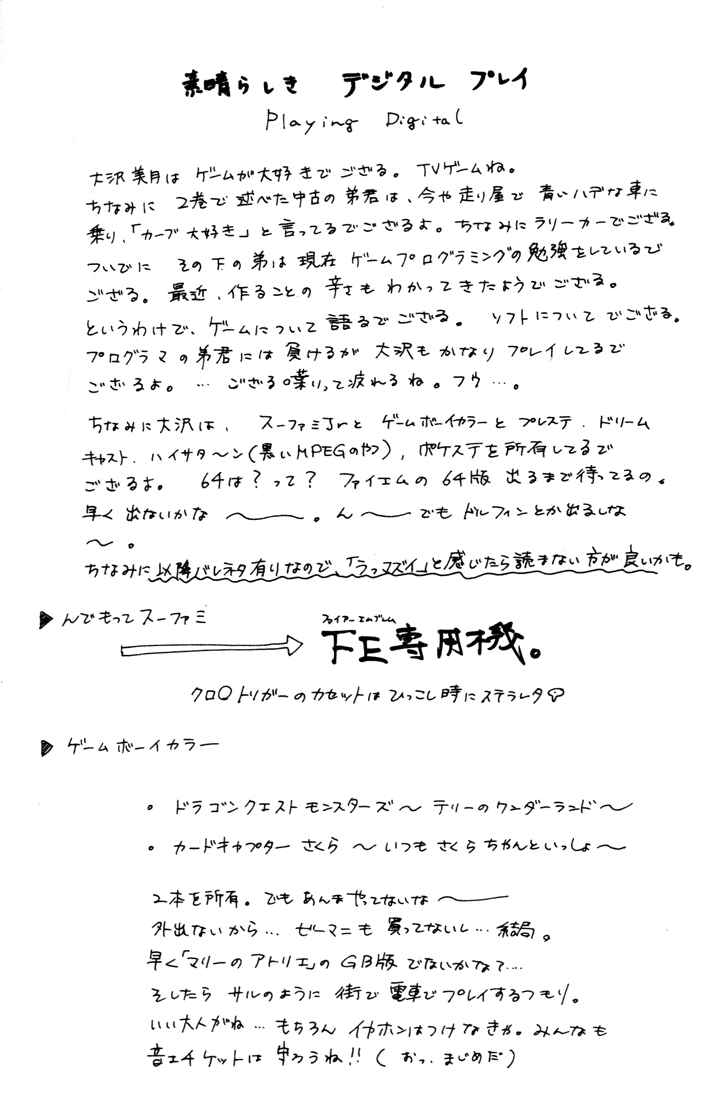 素晴らしき デジタル プレイ
Playing Digital
大沢美月は ゲームが大好きで ござる。 TVゲームね。
ちなみに 2巻で述べた中古の弟君は、今や走り屋で 青いハデな車に
乗り、「カーブ 大好き」と言ってるでござるよ。ちなみにラリーカーでござる。
ついでに その下の弟は現在 ゲームプログラミングの勉強をしているで
ござる。最近、作ることの 辛さも わかってきたようでござる。
というわけで、ゲームについて 語るでござる。 ソフトについて でござる。
プログラマの弟君には 負けるが 大沢も かなり プレイしてるで
ござるよ。… ござる喋りって疲れるね。フウ…。
ちなみに大沢は、 スーファミJrと ゲームボーイカラーと プレステ、ドリーム
キャスト、ハイサターン(黒いMPEGのやつ)、ポケステを所有してるで
ござるよ。 64は?って? ファイエムの 64版 出るまで待ってるの。
早く 出ないかな 〜。ん〜でも ドルフィンとか出るしな
〜。
ちなみに以降バレネタ有りなので、「うっマズイ」と感じたら読まない方が良いかも。
▶ んでもってスーファミ
ファイアーエムブレム
FE専用機。
クロ○トリガーのカセットは ひっこし時にステラレタ♡
▶ ゲームボーイカラー
• ドラゴンクエスト モンスターズ〜テリーのワンダーランド〜
• カードキャプター さくら 〜いつも さくら ちゃんといっしょ〜
2本を所有。でも あんまやってないな 〜
外出ないから… ゼルーマニも 買ってないし… 結局。
早く「マリーの アトリエ」の GB版 でないかな?…
そしたら サルのように 街で 電車でプレイするつもり。
いい大人がね… もちろん イヤホンはつけなきゃ。みんなも
音エチケットは 守ろうね!! ( おっ、まじめだ )